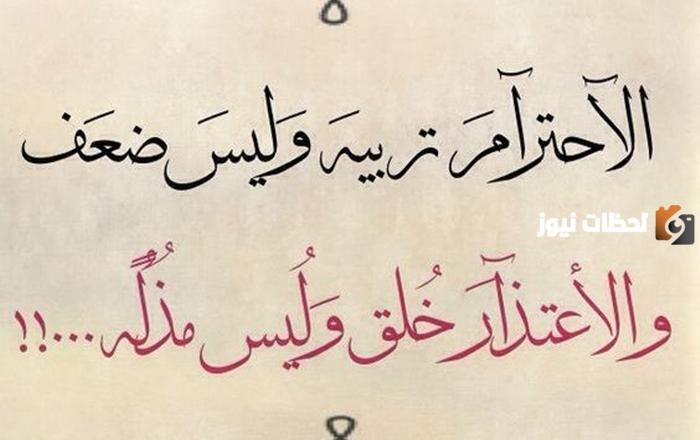 الآحترآمَ تربيہَ وَليسَ ضعَف
لحظات نيوز
والأعتذآرَ خُلق وَلُيس مذلُہً...!!